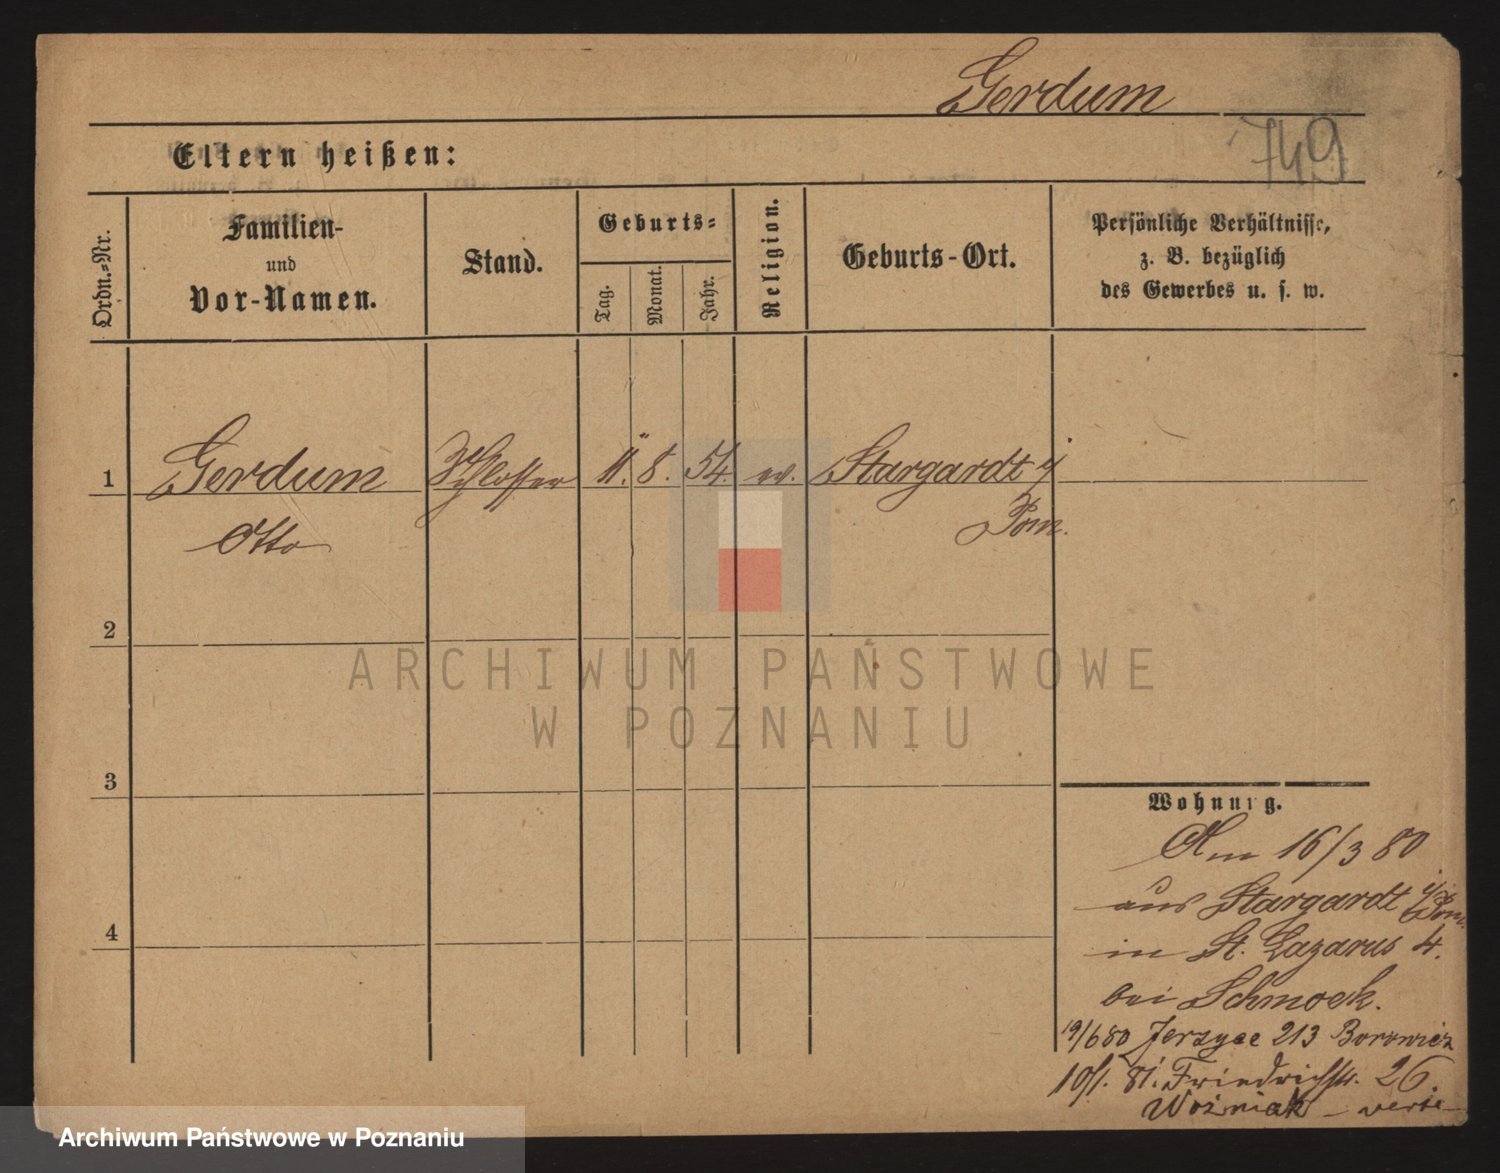 Gerdum
749
Eltern heißen:
Ordn.=Nr.
Familien-
und
Vor-Namen.
Stand.
Geburts=
Tag.
Monat.
Jahr.
Religion.
Geburts-Ort.
Persönliche Verhältnisse,
z. B. bezüglich
des Gewerbes u. s. w.
1 Gerdum Schlosser 11. 8. 54. ev. Stargardt i/
Otto Pom.
2
3
4
ARCHIWUM PAŃSTWOWE
W POZNANIU
Wohnung.
Am 16/3 80
aus Stargardt i/Pom.
in St. Lazarus 4.
bei Schmock.
19/6 80 Jerzyce 213 Borowicz
10/1. 81. Friedrichstr. 26.
Woźniak
Archiwum Państwowe w Poznaniu